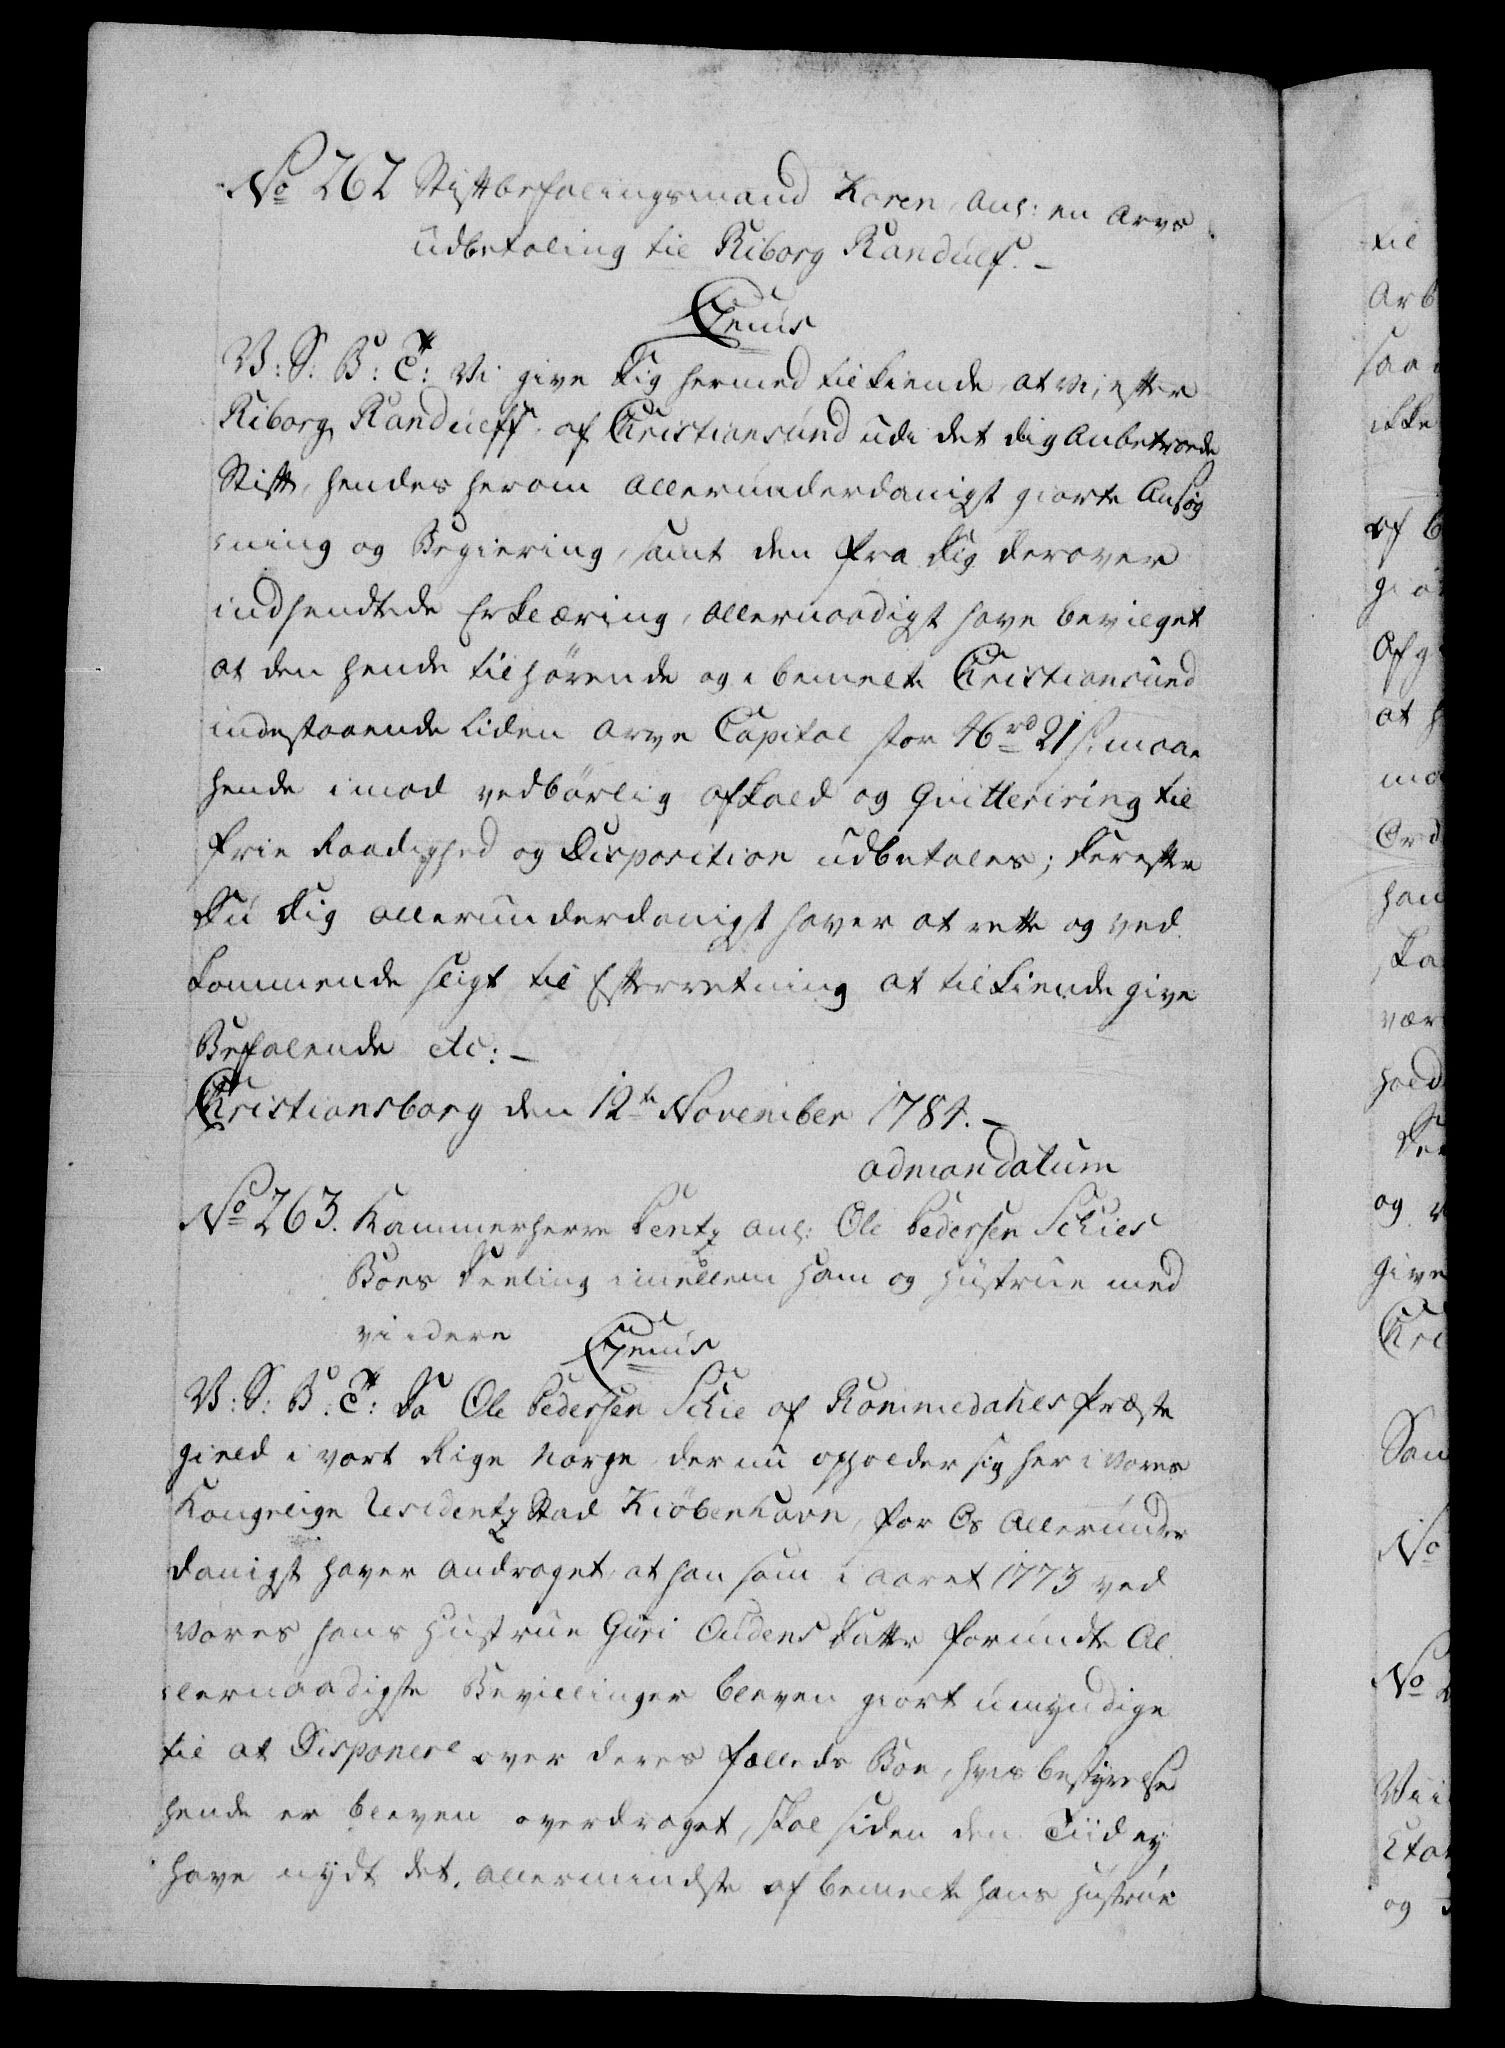 No 262 Stiftbefalingsmand Koren, anl: en Arvs
Udbetaling til Riborg Randulf. –
Genus
V: S: B: T: Vi give Dig hermed tilkiende, at vi, efter
Riborg Randulff af Christiansund udi det dig Anbetroede
Stift, hendes herom allerunderdanigst giorte Ansøg
ning og Begiering, samt den fra Dig derover
indhendtede Erklæring, allernaadigst have bevilget
at den hende tilhørende og i bemelte Christiansund
indestaaende liden Arve Capital stor 46 rd 21 s. maae
hende imod vedbørlig afkald og Quitteriring til
frie Raadighed og Disposition udbetales; Derefter
Du Dig allerunderdanigst haver at rette og ved
kommende sligt til Efterretning at tilkiende give
Befalende etc: –
Christiansborg den 12te November 1784. –
ad mandatum
No 263. Kammerherre Lentz anl: Ole Pedersen Schies
Boes Deeling imellem ham og Hustrue med
viidere
Genus
V: S: B: T: Da Ole Pedersen Schie af Rommedahls Præste
gield i vort Rige Norge der nu opholder sig her i vores
Kongelige Residentz Stad Kiøbenhavn, for Os Allerunder
danigst haver andraget, at han som i aaret 1773 ved
vores hans Hustrue Guri Oudens Datter forundte Al
lernaadigste Bevillinger bleven giort umyndige
til at Disponere over deres fælleds Boe, hvis bestyrelse
hende er bleven overdraget, skal siden den Tiid ey
have nydt det allermindste af bemelte hans Hustrue